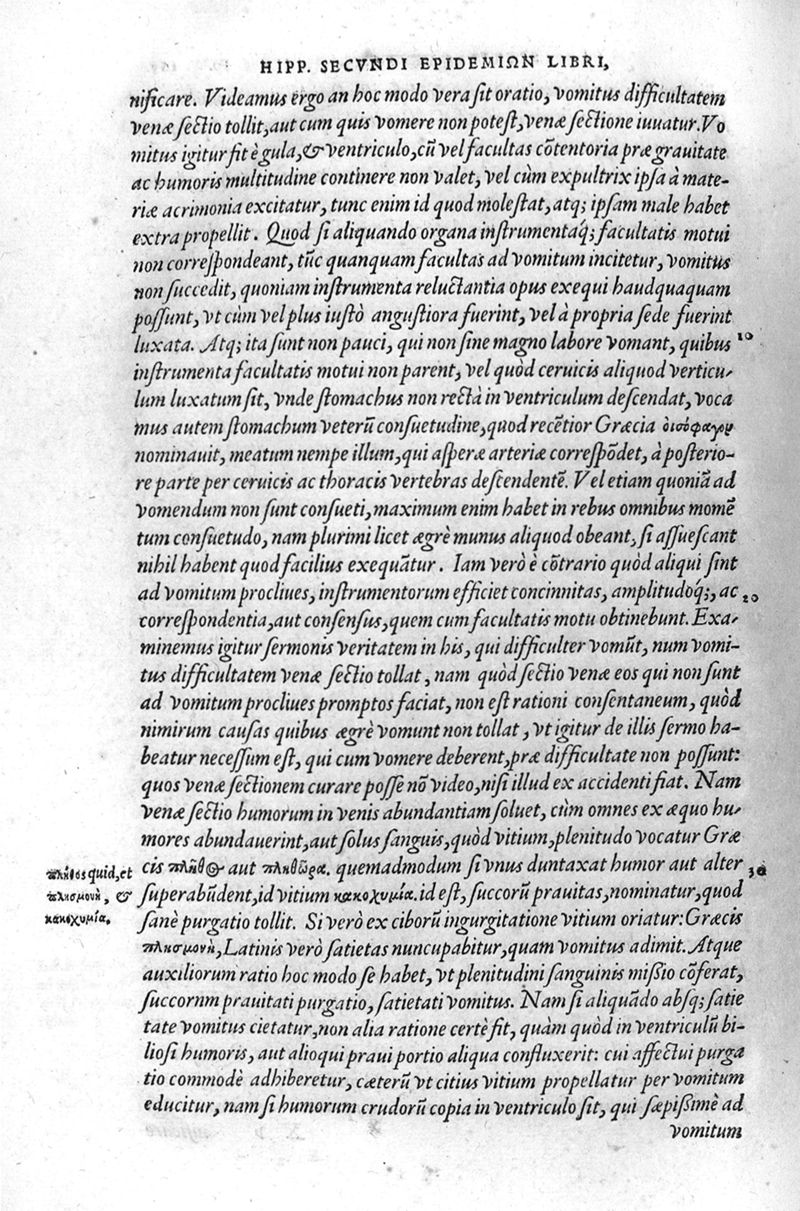 HIPP. SECVNDI EPIDEMIΩN LIBRI,
nificare. Videamus ergo an hoc modo vera ſit oratio, vomitus difficultatem
venæ ſectio tollit, aut cum quis vomere non poteſt, venæ ſectione iuuatur. Vo
mitus igitur fit è gula, & ventriculo, cũ vel facultas cõtentoria præ grauitate
ac humoris multitudine continere non valet, vel cùm expultrix ipſa à mate-
riæ acrimonia excitatur, tunc enim id quod moleſtat, atq; ipſam male habet
extra propellit. Quod ſi aliquando organa inſtrumentaq́; facultatis motui
non correſpondeant, tũc quanquam facultas ad vomitum incitetur, vomitus
non ſuccedit, quoniam inſtrumenta reluctantia opus exequi haudquaquam
poſſunt, vt cùm vel plus iuſtò anguſtiora fuerint, vel à propria ſede fuerint
luxata. Atq; ita ſunt non pauci, qui non ſine magno labore vomant, quibus 10
inſtrumenta facultatis motui non parent, vel quòd ceruicis aliquod verticu-
lum luxatum ſit, vnde ſtomachus non rectà in ventriculum deſcendat, voca
mus autem ſtomachum veterũ conſuetudine, quod recẽtior Græcia οισόφαγον
nominauit, meatum nempe illum, qui aſperæ arteriæ correſpõdet, à poſterio-
re parte per ceruicis ac thoracis vertebras deſcendentẽ. Vel etiam quoniã ad
vomendum non ſunt conſueti, maximum enim habet in rebus omnibus momẽ
tum conſuetudo, nam plurimi licet ægrè munus aliquod obeant, ſi aſſueſcant
nihil habent quod facilius exequãtur. Iam verò è cõtrario quòd aliqui ſint
ad vomitum procliues, inſtrumentorum efficiet concinnitas, amplitudoq́;, ac 20
correſpondentia, aut conſenſus, quem cum facultatis motu obtinebunt. Exa-
minemus igitur ſermonis veritatem in his, qui difficulter vomũt, num vomi-
tus difficultatem venæ ſectio tollat, nam quòd ſectio venæ eos qui non ſunt
ad vomitum procliues promptos faciat, non eſt rationi conſentaneum, quòd
nimirum cauſas quibus ægrè vomunt non tollat, vt igitur de illis ſermo ha-
beatur neceſſum eſt, qui cum vomere deberent, præ difficultate non poſſunt:
quos venæ ſectionem curare poſſe nõ video, niſi illud ex accidenti fiat. Nam
venæ ſectio humorum in venis abundantiam ſoluet, cùm omnes ex æquo hu-
mores abundauerint, aut ſolus ſanguis, quòd vitium, plenitudo vocatur Græ
cis πλῆθος aut πληθώρα. quemadmodum ſi vnus duntaxat humor aut alter 30
ſuperabũdent, id vitium κακοχυμία. id eſt, ſuccorũ prauitas, nominatur, quod
ſanè purgatio tollit. Si verò ex ciborũ ingurgitatione vitium oriatur: Græcis
πλησμονὴ, Latinis verò ſatietas nuncupabitur, quam vomitus adimit. Atque
auxiliorum ratio hoc modo ſe habet, vt plenitudini ſanguinis miſsio cõferat,
ſuccornm prauitati purgatio, ſatietati vomitus. Nam ſi aliquãdo abſq; ſatie
tate vomitus cietatur, non alia ratione certè fit, quàm quòd in ventriculũ bi-
lioſi humoris, aut alioqui praui portio aliqua confluxerit: cui affectui purga
tio commodè adhiberetur, cæterũ vt citius vitium propellatur per vomitum
educitur, nam ſi humorum crudorũ copia in ventriculo ſit, qui ſæpiſsimè ad
vomitum
πλῆθος quid, et
πλησμονὴ, &
κακοχυμία.